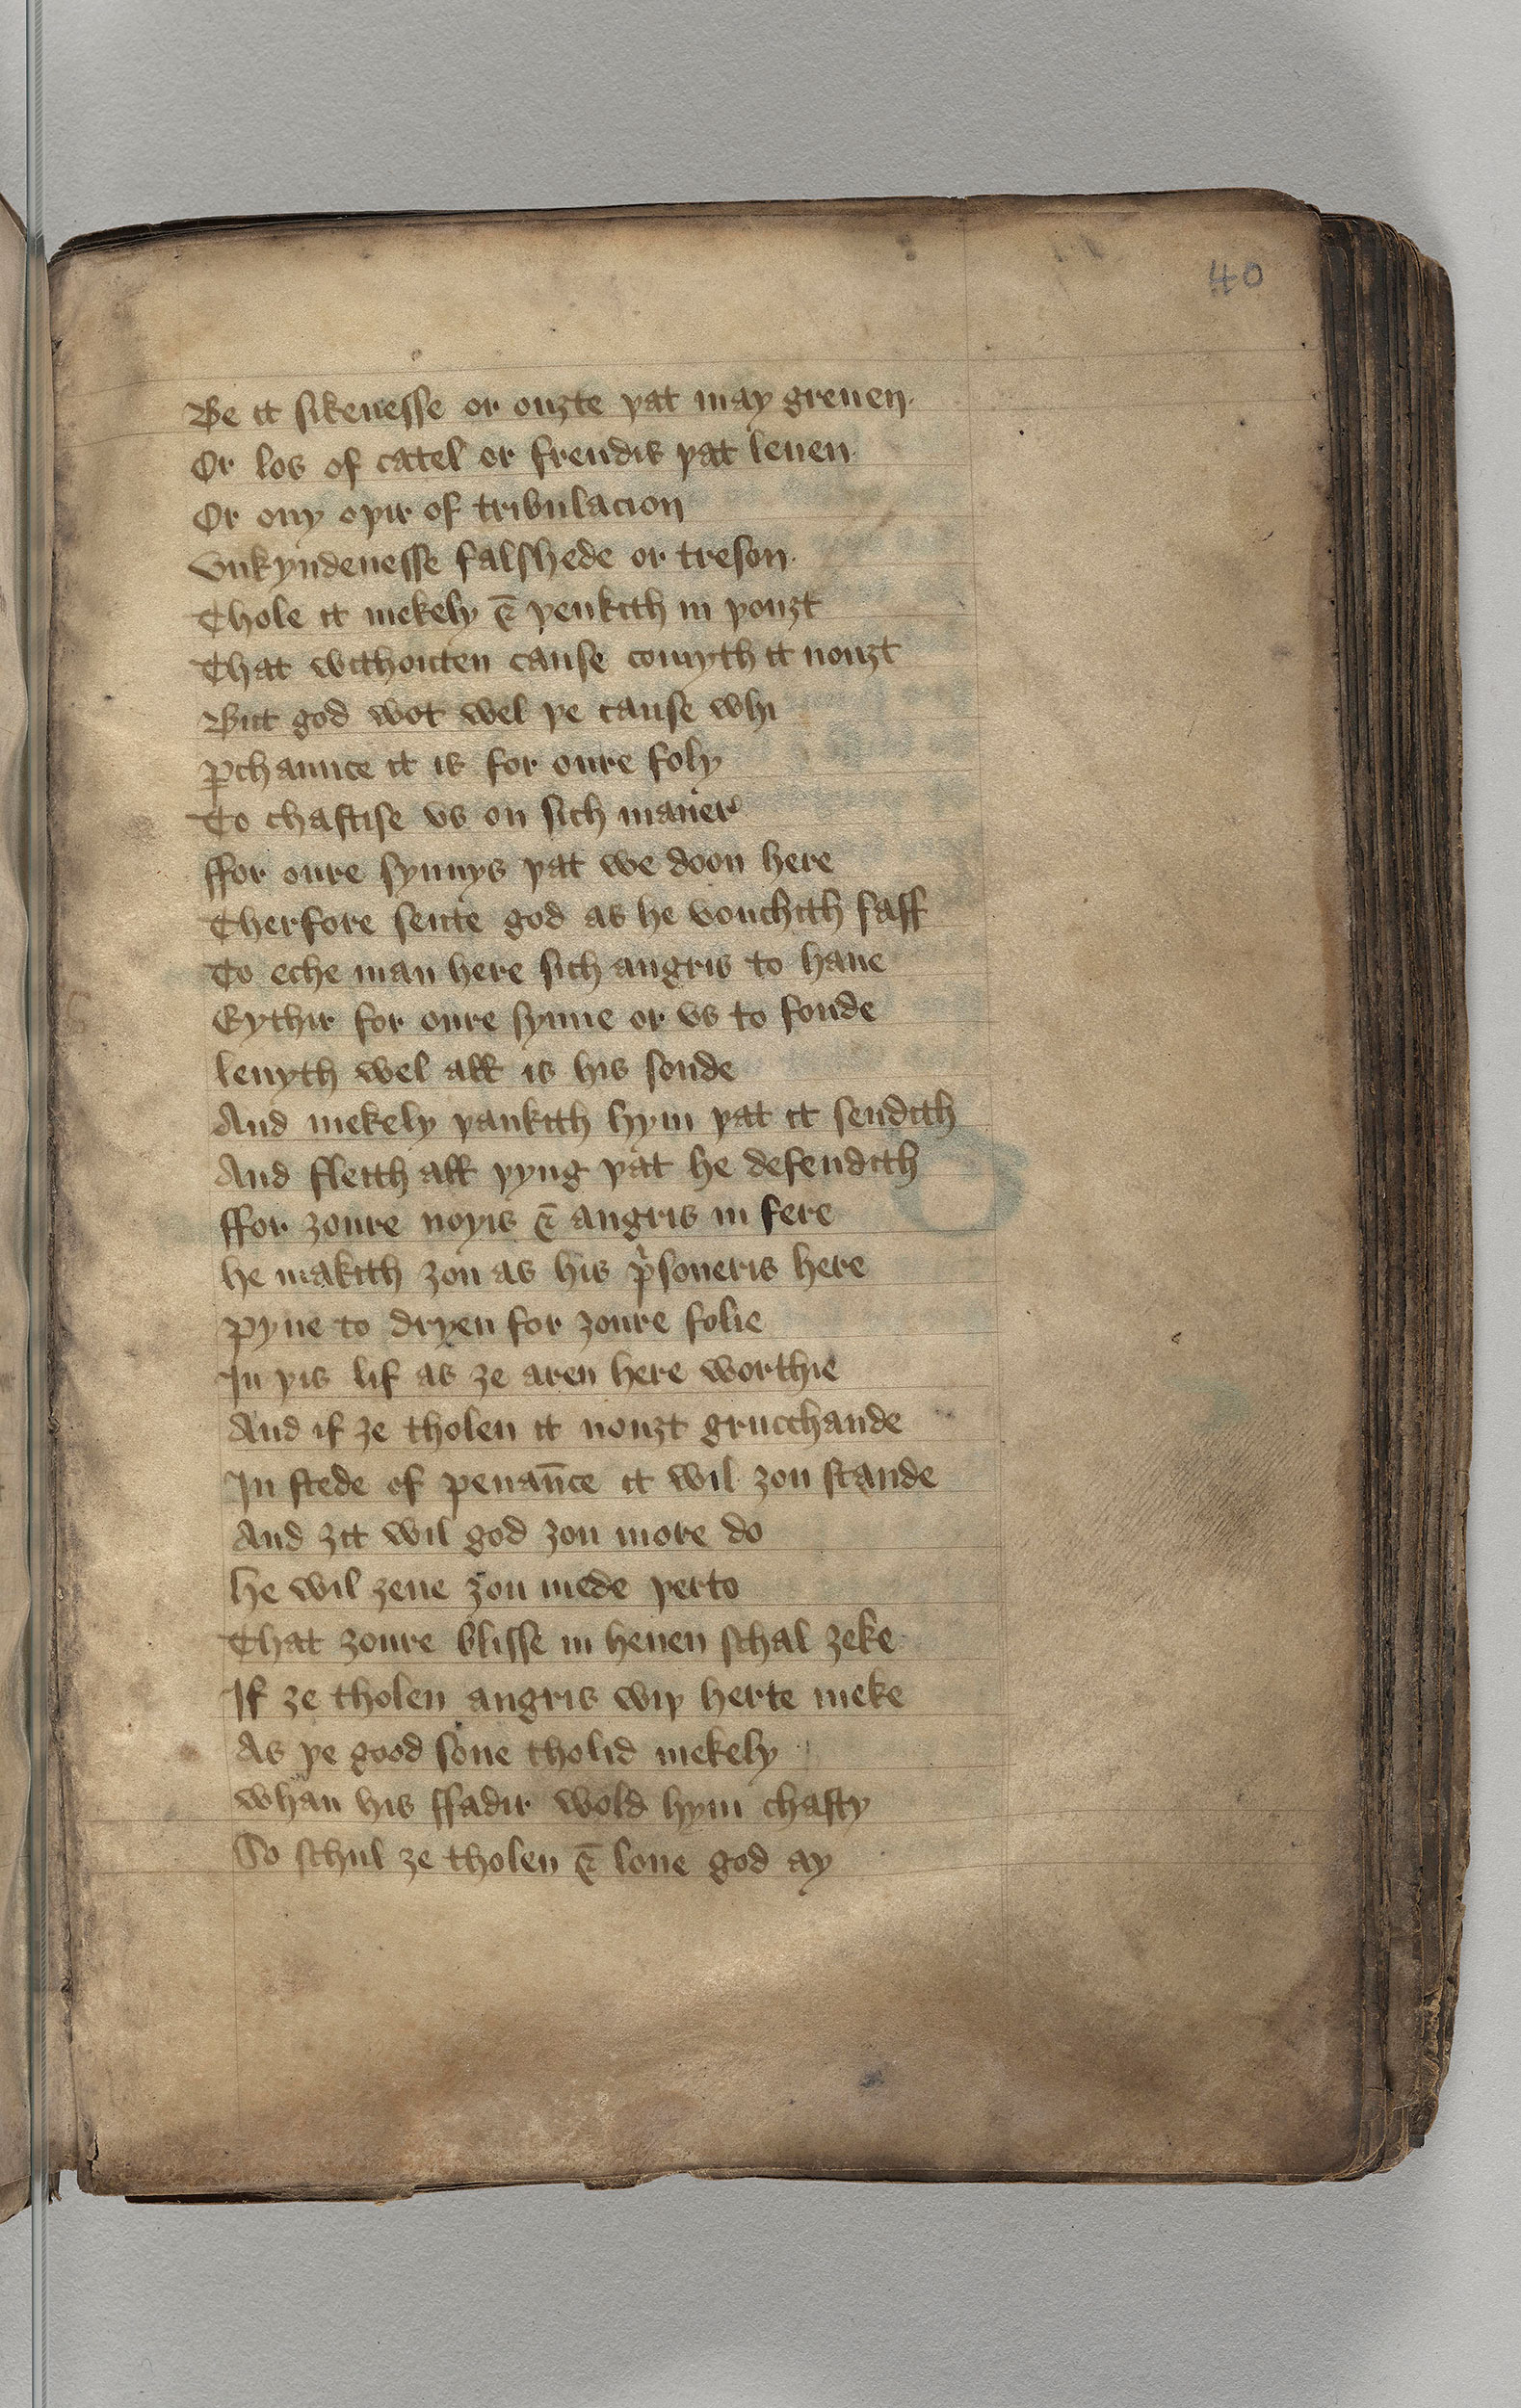 40
Be it sikenesse or ouzte yat may greuen.
Or los of catel or frendis yat leuen.
Or ony oyir of tribulacion
Vnkyndenesse falshede or treson.
Thole it mekely & yenkith in youzt
That withouten cause comyth it nouzt
But god wot wel ye cause whi
ꝑchaunce it is for oure foly
To chastise vs on sich maner
ffor oure synnys yat we doon here
Therfore sente god as he vouchith saff
To eche man here sich angris to haue
Eythir for oure synne or vs to fonde
leuyth wel all is his sonde
And mekely yankith hym yat it sendith
And fleith all yyng yat he defendith
ffor zoure noyis & angris in fere
he makith zou as his pͥsoneris here
pyne to dryen for zoure folie
In yis lif as ze aren here worthie
And if ze tholen it nouzt grucchande
In stede of penañce it wil zou stande
And zit wil god zou more do
he wil zeue zou mede yerto
That zoure blisse in heuen schal zeke
If ze tholen angris wiy herte meke
As ye good sone tholid mekely
whan his ffadir wold hym chasty
So schul ze tholen & loue god ay